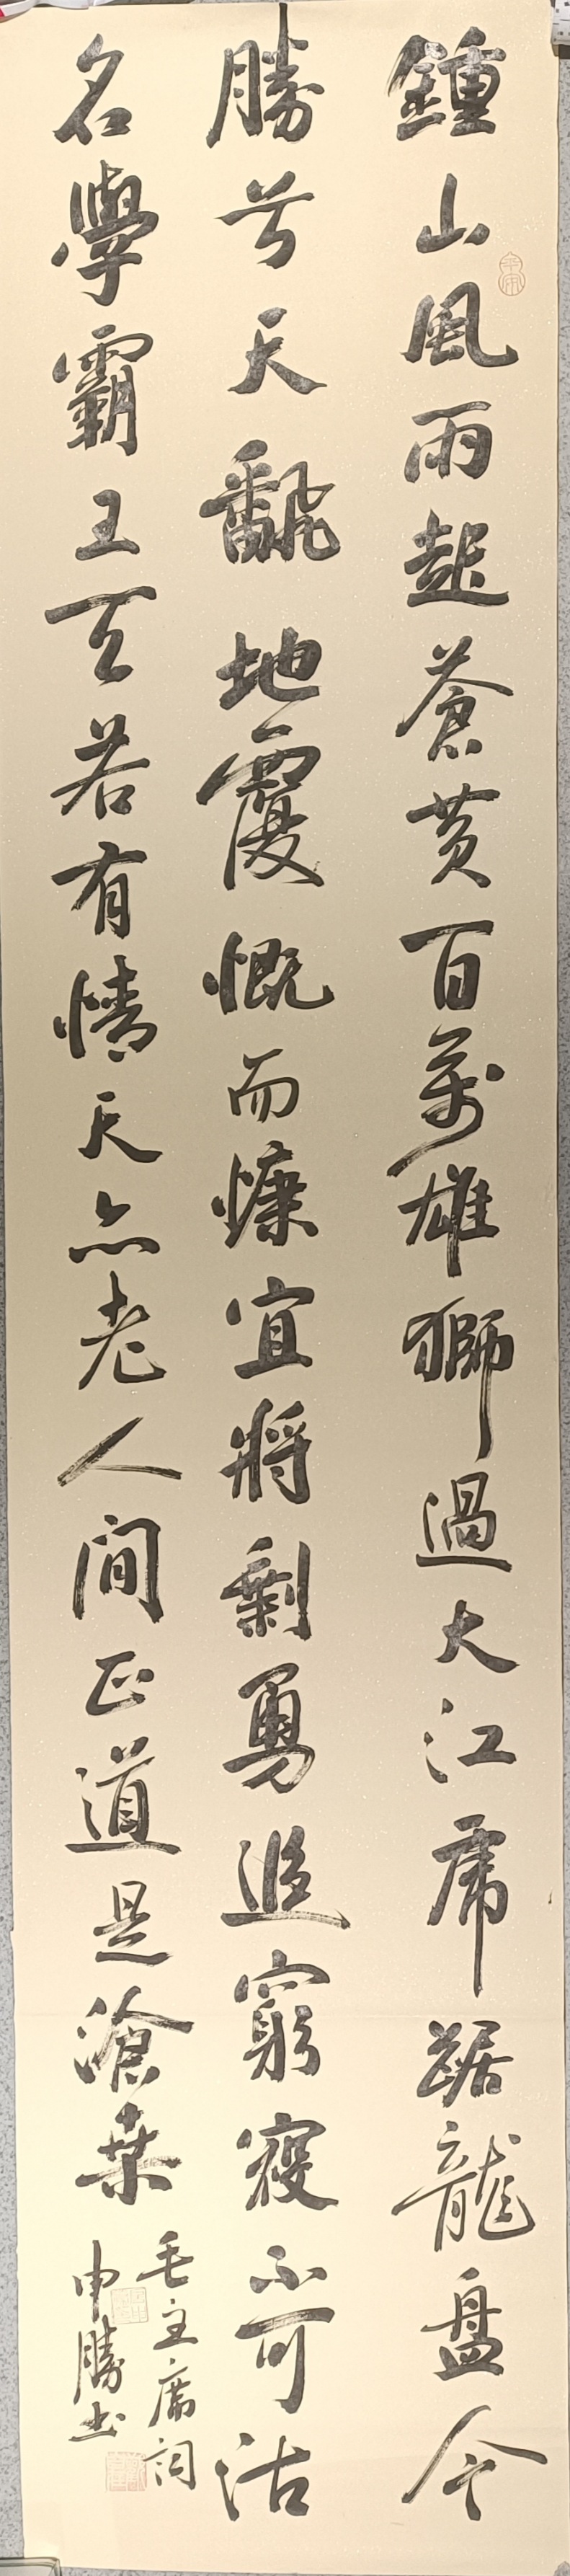 鍾山風雨起蒼黄百萬雄獅過大江虎踞龍盤今
勝昔天翻地覆慨而慷宜將剩勇追窮寇不可沽
名學霸王天若有情天亦老人间正道是滄桑
毛主席詞
申勝书